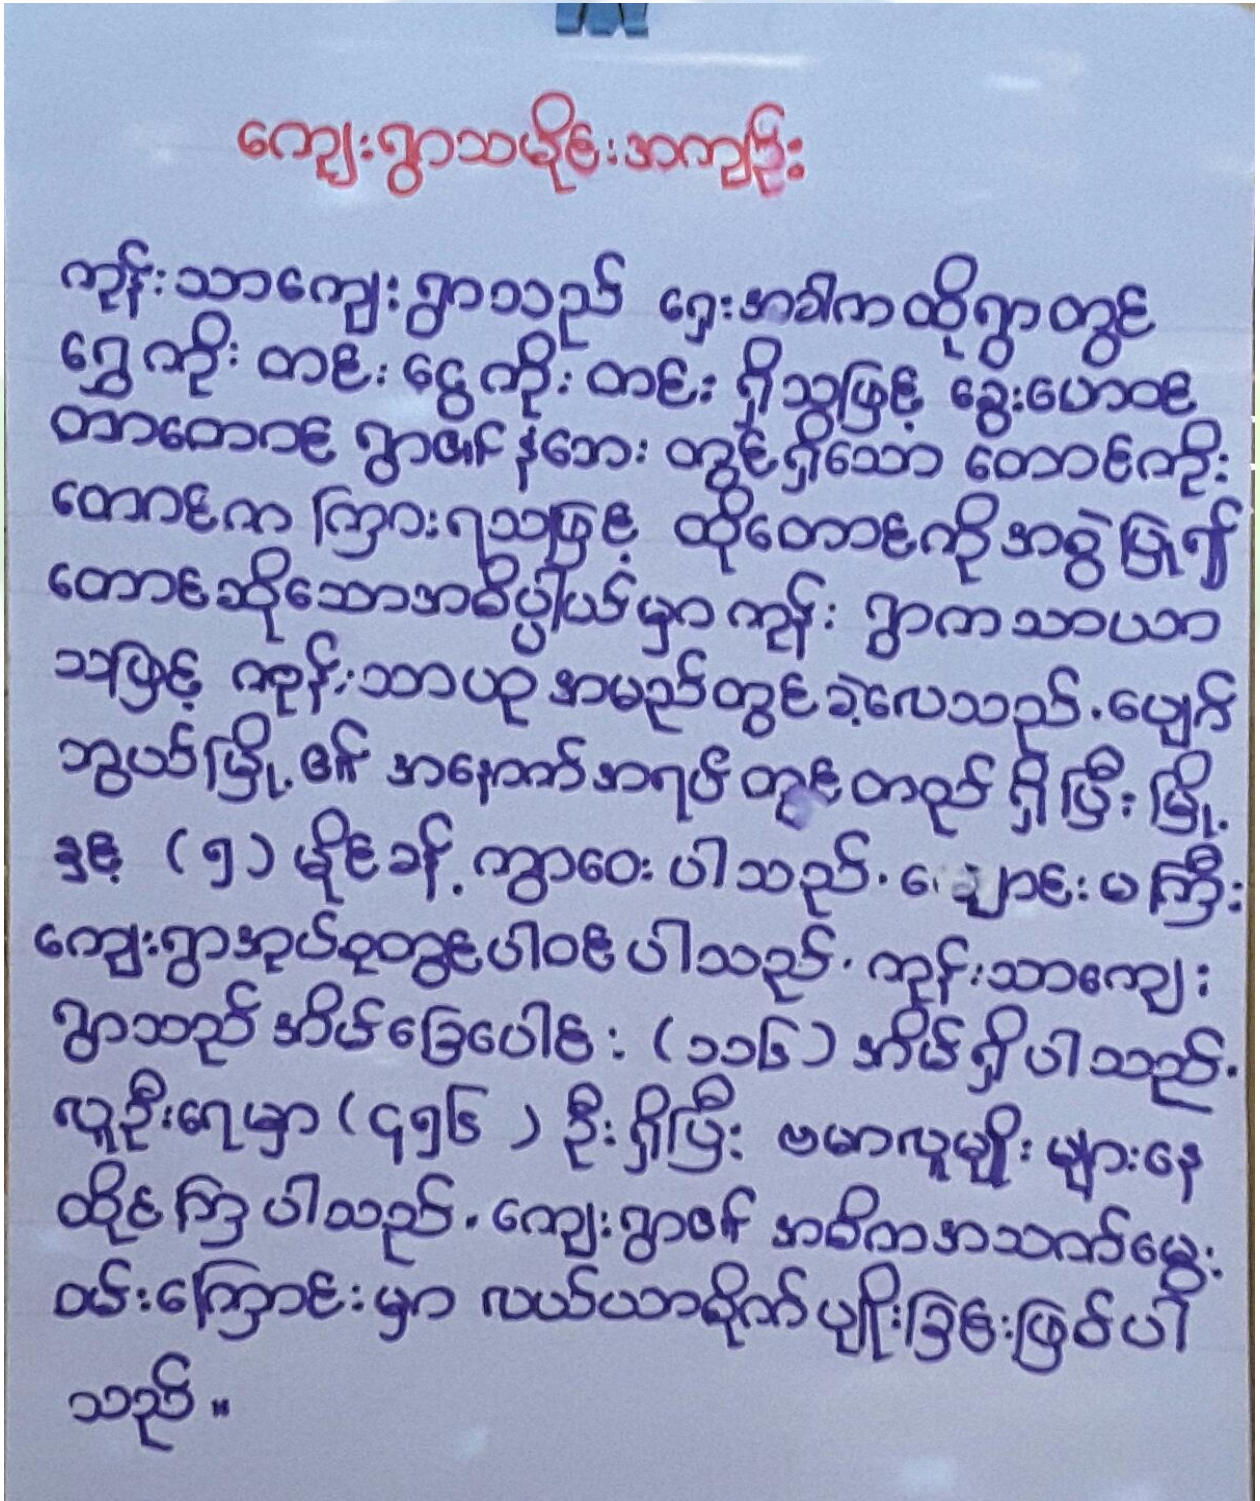 ကျေးရွာသမိုင်းအကျဉ်း
ကုန်းသာကျေးရွာသည် ရှေးအခါကထိုရွာတွင်
ရွှေကိုး တင်း ငွေကိုး တင်း ရှိသဖြင့် ခွေးဟောင်
တာတောင် ရွာ၏ နံဘေး တွင်ရှိသော တောင်ကိုး
တောင်က ကြားရသဖြင့် ထိုတောင်ကိုအစွဲ ပြု၍
တောင်ဆိုသောအဓိပ္ပါယ်မှာ ကုန်း ရွာကသာယာ
သဖြင့် ကုန်းသာဟု အမည်တွင်ခဲ့လေသည်. ပျော်
ဘွယ်မြို့၏ အနောက်အရပ်တွင်တည်ရှိပြီး မြို့
နှင့် (၅) မိုင်ခန့် ကွာဝေးပါသည်. ချောင်းမကြီး
ကျေးရွာအုပ်စုတွင်ပါဝင်ပါသည်. ကုန်းသာကျေး
ရွာသည်အိမ်ခြေပေါင်း (၁၁၆) အိမ်ရှိပါသည်.
လူဦးရေမှာ (၄၅၆) ဦးရှိပြီး ဗမာလူမျိုး များနေ
ထိုင်ကြပါသည်. ကျေးရွာ၏ အဓိကအသက်မွေး
ဝမ်းကြောင်းမှာ လယ်ယာစိုက်ပျိုးခြင်းဖြစ်ပါ
သည်။